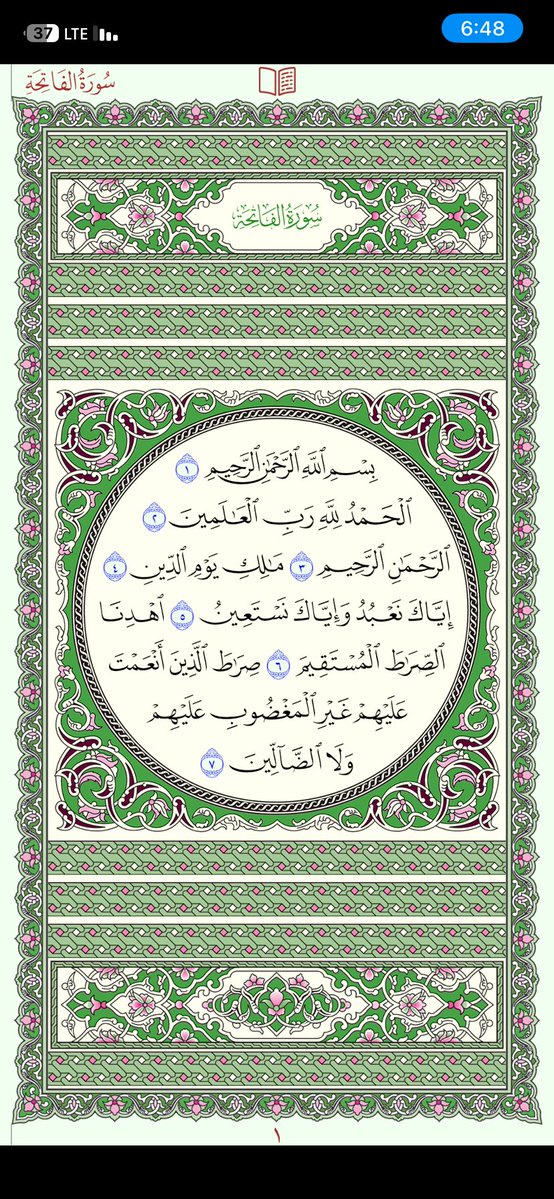 37 LTE 6:48
سُورَةُ الفَاتِحَةِ
سُورَةُ الفَاتِحَةِ
بِسْمِ ٱللَّهِ ٱلرَّحْمَٰنِ ٱلرَّحِيمِ ١
ٱلْحَمْدُ لِلَّهِ رَبِّ ٱلْعَٰلَمِينَ ٢
ٱلرَّحْمَٰنِ ٱلرَّحِيمِ ٣ مَٰلِكِ يَوْمِ ٱلدِّينِ ٤
إِيَّاكَ نَعْبُدُ وَإِيَّاكَ نَسْتَعِينُ ٥ ٱهْدِنَا
ٱلصِّرَٰطَ ٱلْمُسْتَقِيمَ ٦ صِرَٰطَ ٱلَّذِينَ أَنْعَمْتَ
عَلَيْهِمْ غَيْرِ ٱلْمَغْضُوبِ عَلَيْهِمْ
وَلَا ٱلضَّآلِّينَ ٧
١